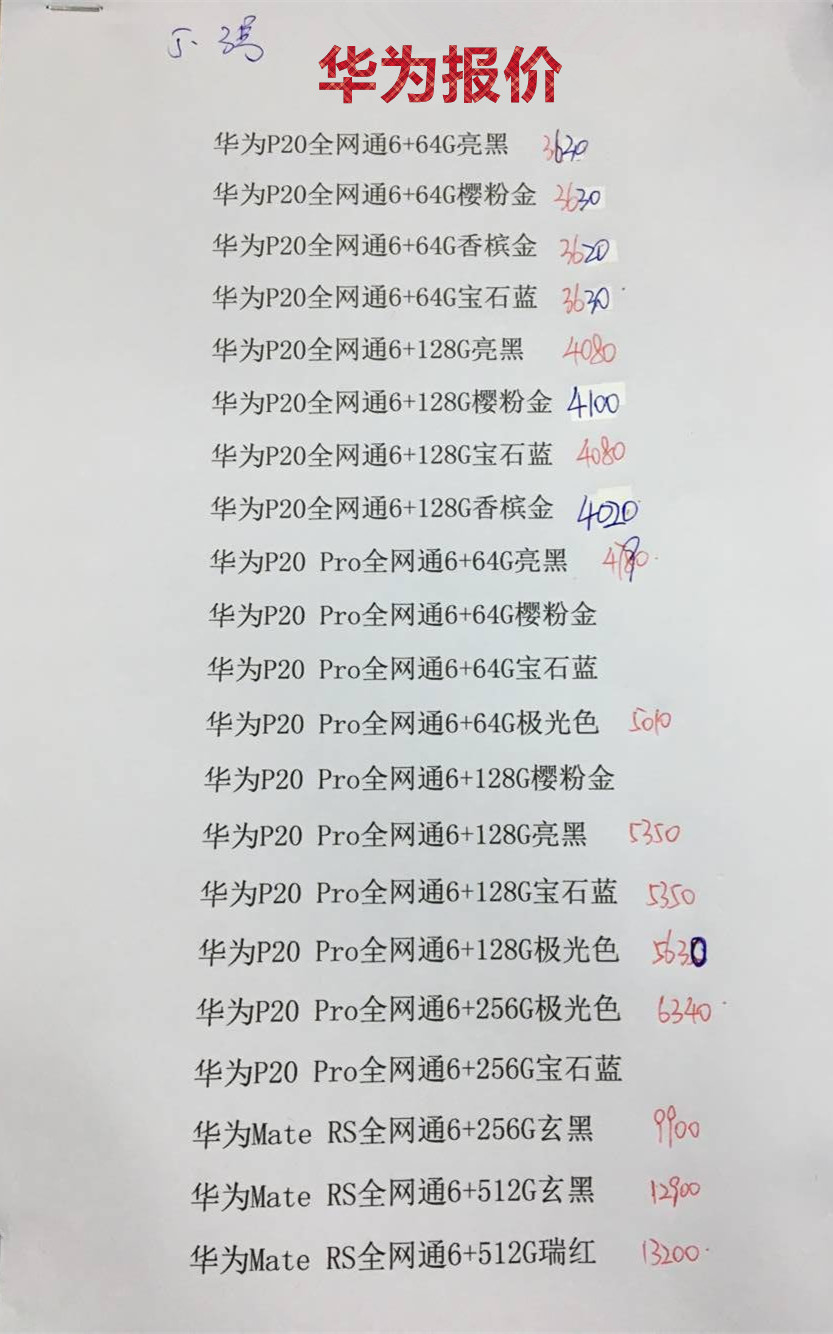 5. 3号
华为报价
华为P20全网通6+64G亮黑 3630
华为P20全网通6+64G樱粉金 3630
华为P20全网通6+64G香槟金 3620
华为P20全网通6+64G宝石蓝 3630
华为P20全网通6+128G亮黑 4080
华为P20全网通6+128G樱粉金 4100
华为P20全网通6+128G宝石蓝 4080
华为P20全网通6+128G香槟金 4020
华为P20 Pro全网通6+64G亮黑
华为P20 Pro全网通6+64G樱粉金
华为P20 Pro全网通6+64G宝石蓝
华为P20 Pro全网通6+64G极光色 5010
华为P20 Pro全网通6+128G樱粉金
华为P20 Pro全网通6+128G亮黑 5350
华为P20 Pro全网通6+128G宝石蓝 5350
华为P20 Pro全网通6+128G极光色 5630
华为P20 Pro全网通6+256G极光色 6340
华为P20 Pro全网通6+256G宝石蓝
华为Mate RS全网通6+256G玄黑 9900
华为Mate RS全网通6+512G玄黑 12900
华为Mate RS全网通6+512G瑞红 13200